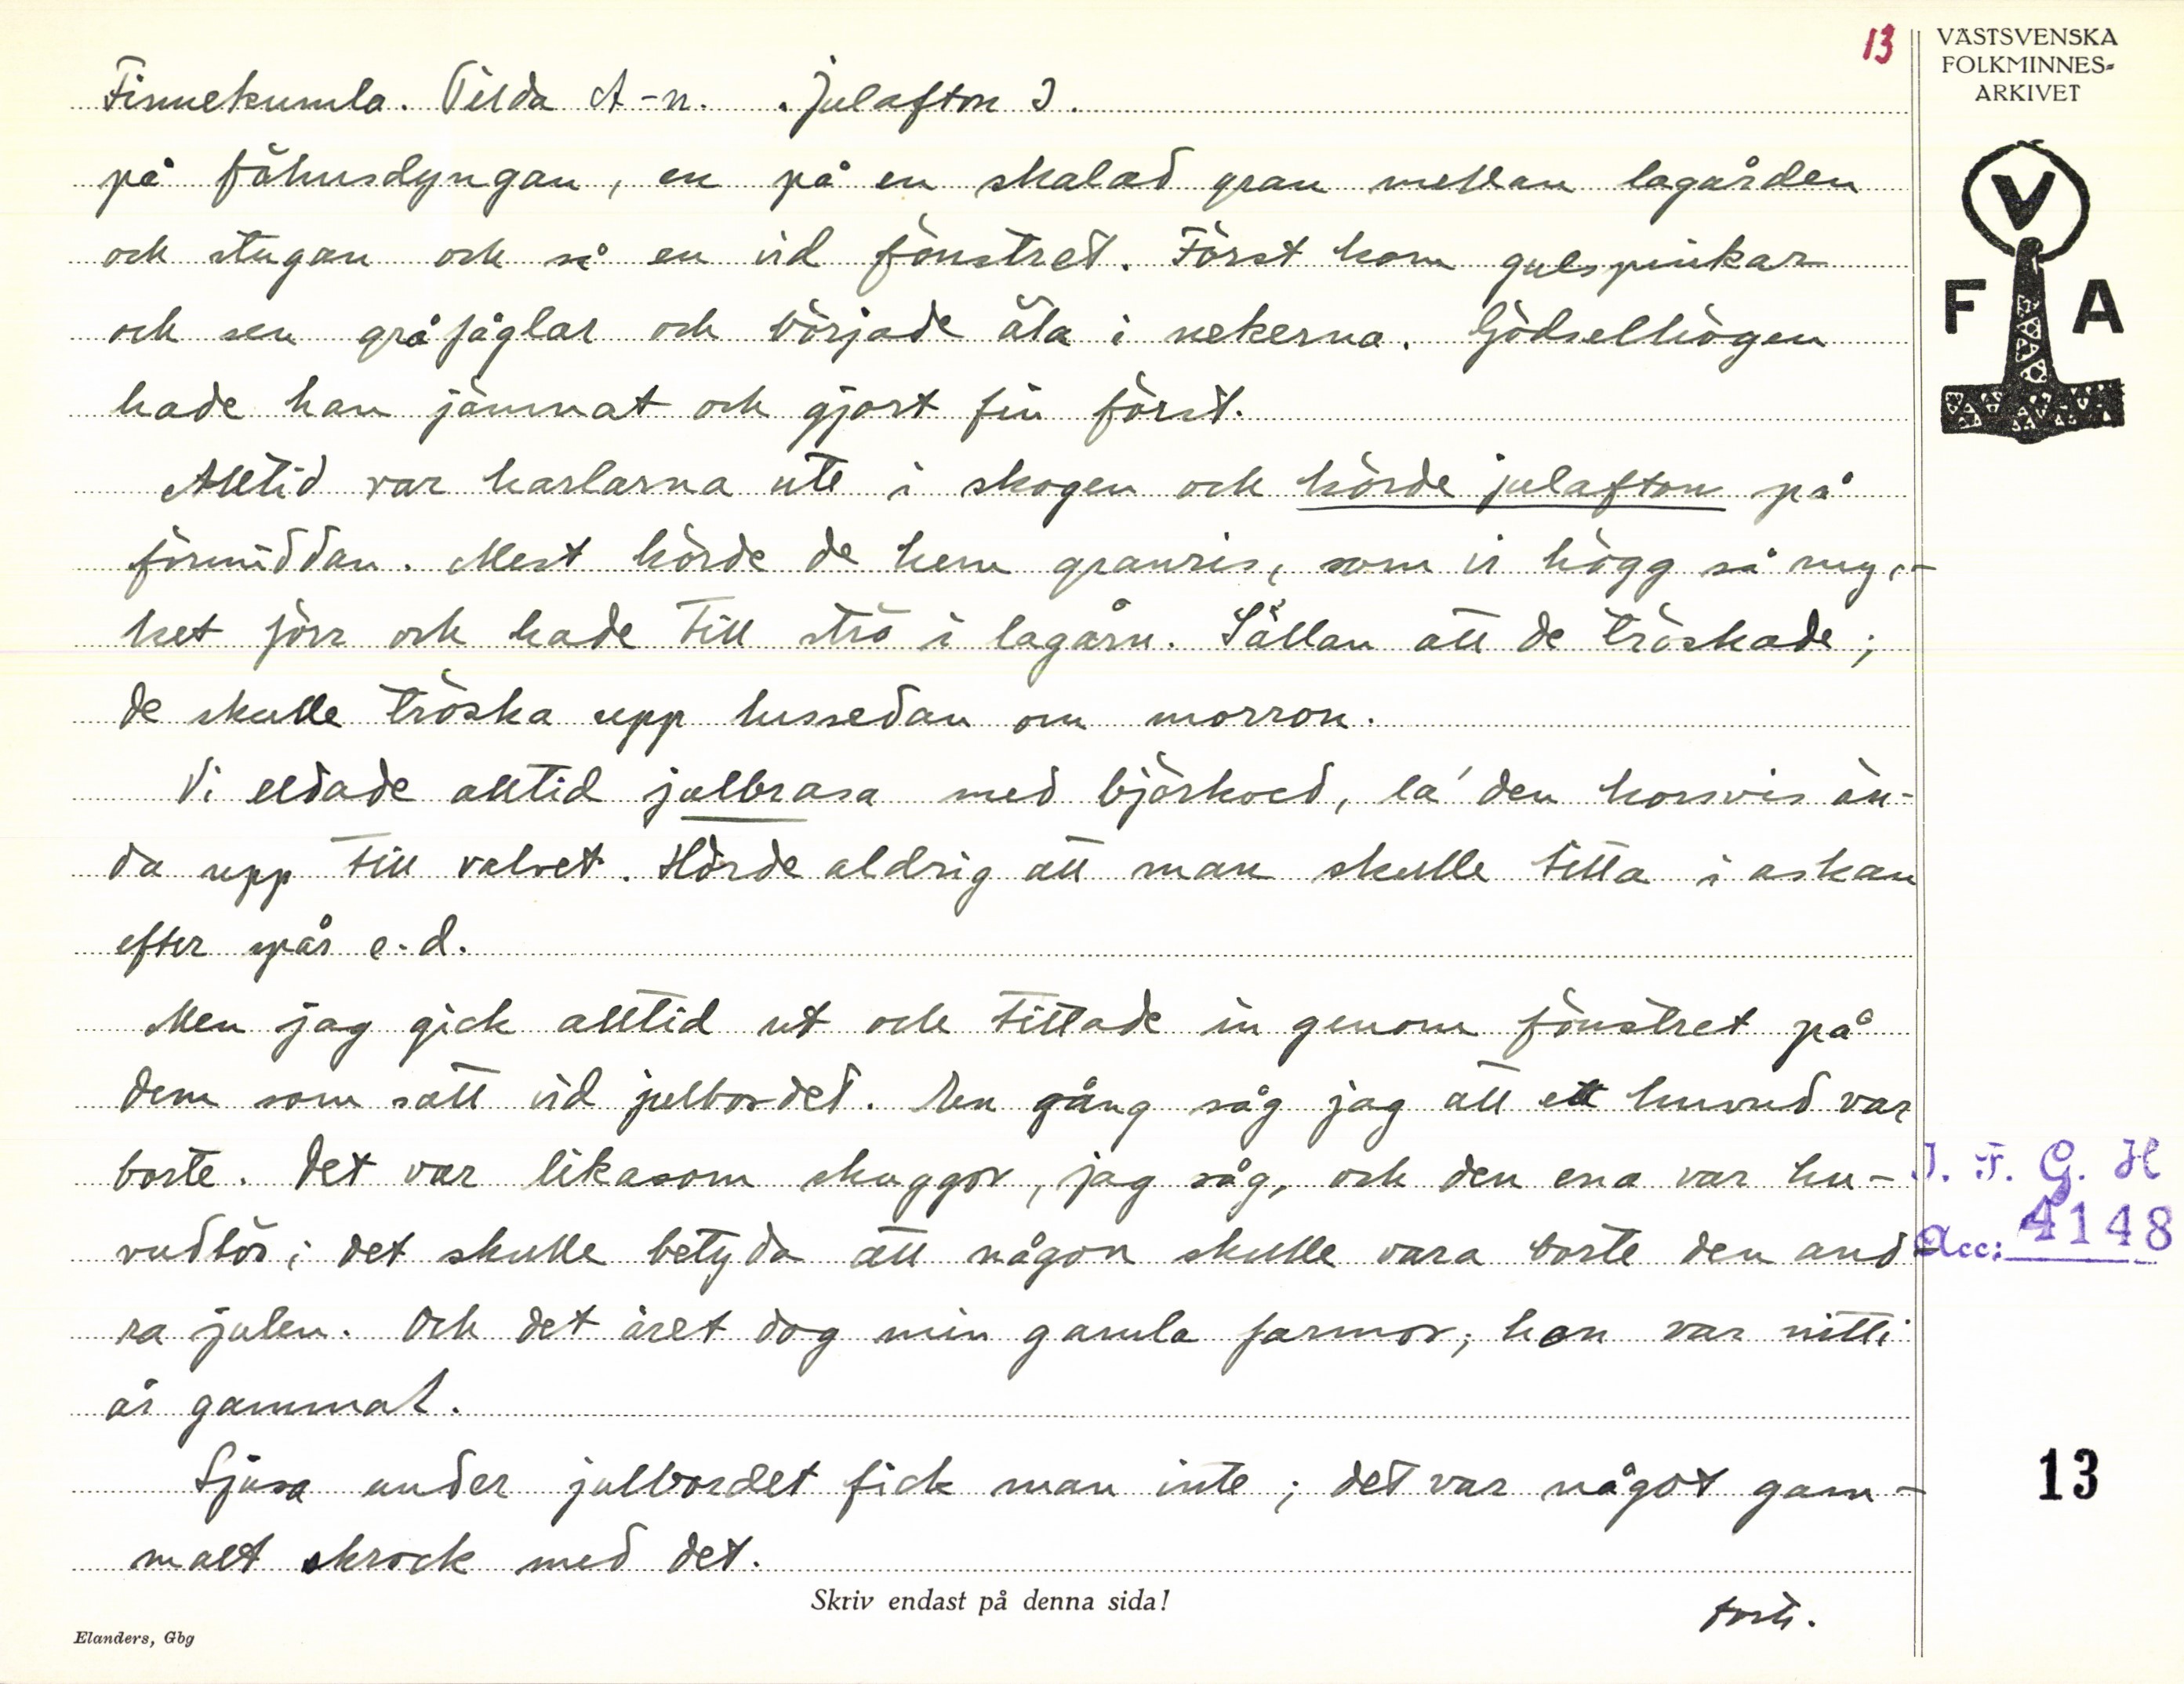 13
VÄSTSVENSKA
FOLKMINNES-
ARKIVET
V
F A
Finnekumla. Tilda A-n. Julafton 3.
på fähusdyngan, en på en skalad gran mellan lagården
och stugan och så en vid fönstret. Först kom gulspinkar
och sen gråfåglar och började äta i nekerna. Gödselhögen
hade han jämnat och gjort fin först.
Alltid var karlarna ute i skogen och körde julafton på
förmiddan. Mest körde de hem granris, som vi högg så myc-
ket förr och hade till strö i lagårn. Sällan att de tröskade;
de skulle tröska upp lussedan om morron.
Vi eldade alltid julbrasa med björkved, la' den korsvis än-
da upp till valvet. Hörde aldrig att man skulle titta i askan
efter spår e.d.
Men jag gick alltid ut och tittade in genom fönstret på
dem som satt vid julbordet. En gång såg jag att ett huvud var
borte. Det var likasom skuggor, jag såg, och den ena var hu-
vudlös; det skulle betyda att någon skulle vara borte den and-
ra julen. Och det året dog min gamla farmor; hon var nitti
år gammal.
Ljusa under julbordet fick man inte; det var något gam-
malt skrock med det.
forts.
I. F. G. H
Acc: 4148
13
Skriv endast på denna sida!
Elanders, Gbg